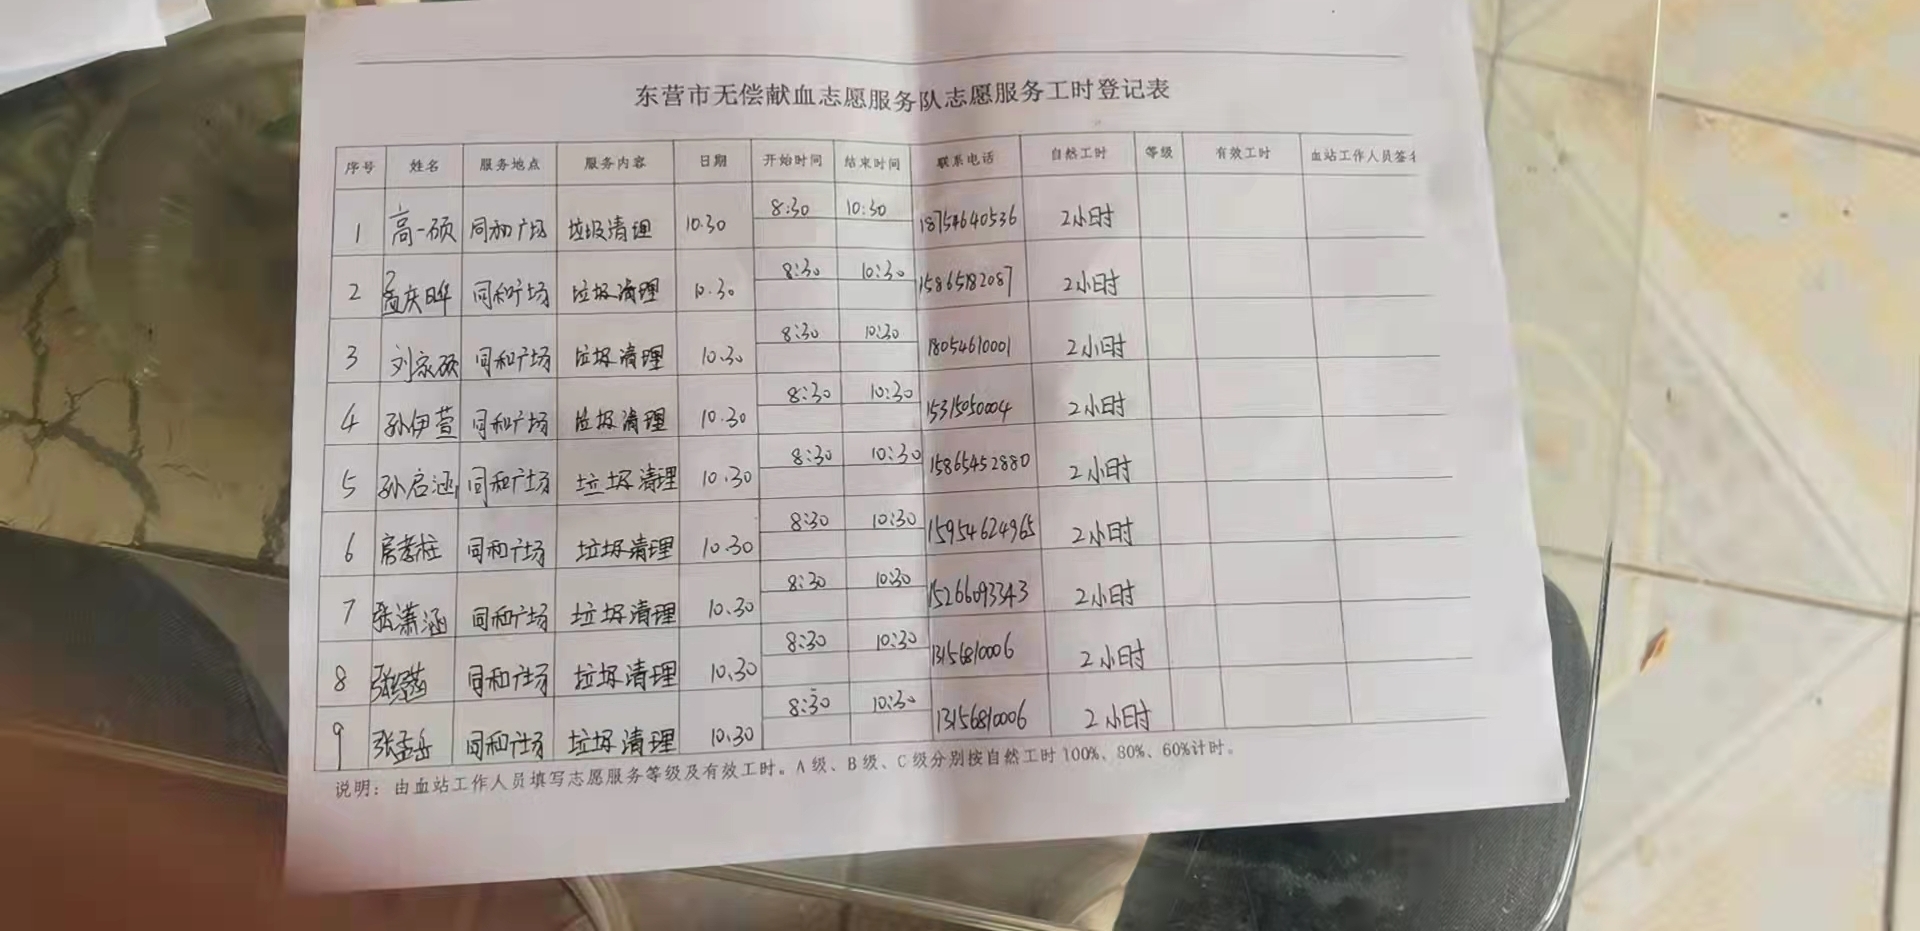 东营市无偿献血志愿服务队志愿服务工时登记表
序号 姓名 服务地点 服务内容 日期 开始时间 结束时间 联系电话 自然工时 等级 有效工时 血站工作人员签名
1 高一硕 同和广场 垃圾清理 10.30 8:30 10:30 18754640536 2小时
2 孟庆晔 同和广场 垃圾清理 10.30 8:30 10:30 15865182087 2小时
3 刘家硕 同和广场 垃圾清理 10.30 8:30 10:30 18054610001 2小时
4 孙伊萱 同和广场 垃圾清理 10.30 8:30 10:30 15315050004 2小时
5 孙启涵 同和广场 垃圾清理 10.30 8:30 10:30 15865452880 2小时
6 房孝柱 同和广场 垃圾清理 10.30 8:30 10:30 15954624965 2小时
7 张潇涵 同和广场 垃圾清理 10.30 8:30 10:30 15266093343 2小时
8 同和广场 垃圾清理 10.30 8:30 10:30 13156810006 2小时
9 张孟岳 同和广场 垃圾清理 10.30 8:30 10:30 13156810006 2小时
说明：由血站工作人员填写志愿服务等级及有效工时。A级、B级、C级分别按自然工时100%、80%、60%计时。